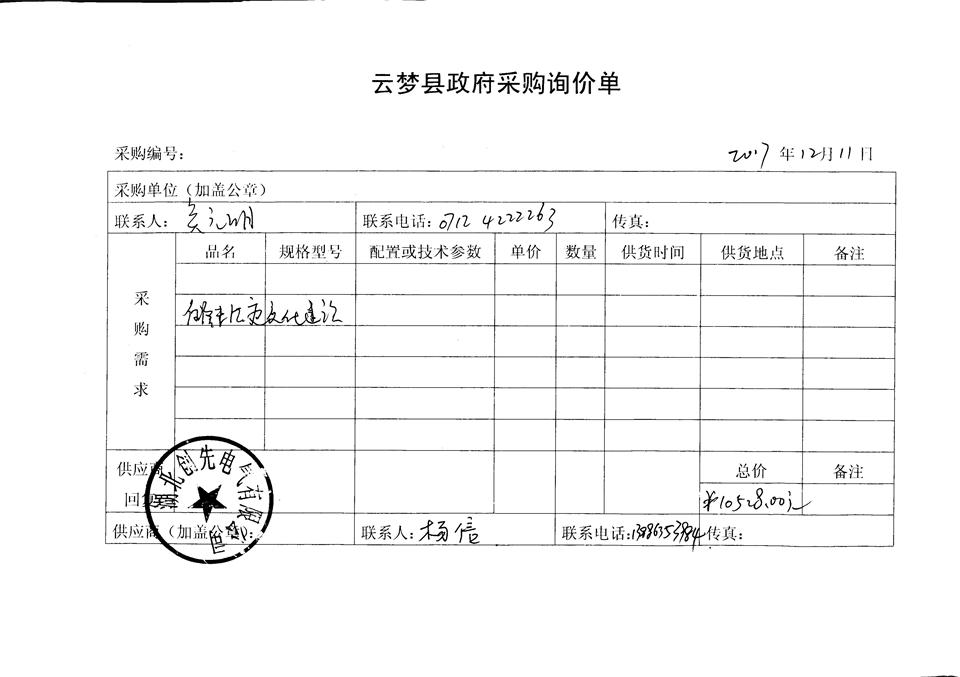 云梦县政府采购询价单
采购编号：
2017年12月11日
采购单位（加盖公章）
联系人：
联系电话：0712 4222263
传真：
采购需求
品名 规格型号 配置或技术参数 单价 数量 供货时间 供货地点 备注
文化建设
供应商回复
总价 备注
¥10528.00元
供应商（加盖公章）：
联系人：杨信
联系电话：
传真：
湖北创先电气有限公司